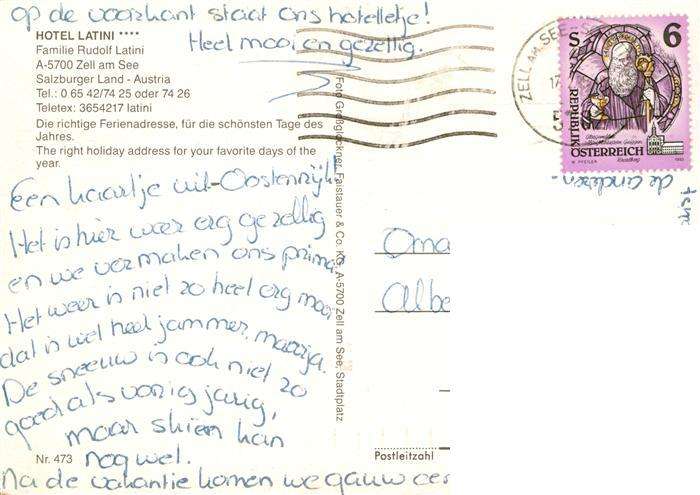 op de voorkant staat ons hotelletje!
Heel mooi en gezellig.
HOTEL LATINI ****
Familie Rudolf Latini
A-5700 Zell am See
Salzburger Land - Austria
Tel.: 0 65 42/74 25 oder 74 26
Teletex: 3654217 latini
Die richtige Ferienadresse, für die schönsten Tage des
Jahres.
The right holiday address for your favorite days of the
year.
Een kaartje uit Oostenrijk!
Het is hier weer erg gezellig
en we vermaken ons prima.
Het weer is niet zo heel erg mooi
dat is wel heel jammer, maarja.
De sneeuw is ook niet zo
goed als vorig jarig,
maar skiën kan
nog wel.
Nr. 473
Na de vakantie komen we gauw
Foto Großglockner, Faistauer & Co. KG, A-5700 Zell am See, Stadtplatz
ZELL AM SEE
17
5
S 6
REPUBLIK
ÖSTERREICH
W. PFEILER
1993
de anderen-
Oma
Albe
Postleitzahl